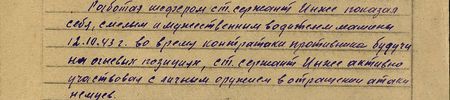 Работая шофером ст. сержант Инже показал
себя, смелым и мужественним водителем машины
12.10.43 г. во время контратаки противника будучи
на огневых позициях, ст. сержант Инже активно
участвовал с личным оружием в отращении атаки
немцев.